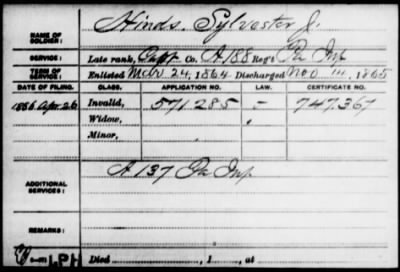 NAME OF SOLDIER: Hinds, Sylvester J.
SERVICE: Late rank, Co. A 188 Reg't Pa Inf
TERM OF SERVICE: Enlisted Mch 24, 1864 Discharged Nov 14, 1865
DATE OF FILING. CLASS. APPLICATION NO. LAW. CERTIFICATE NO.
1886 Apr. 26 Invalid, 571.285 – 747.367
Widow,
Minor,
ADDITIONAL SERVICES: A 137 Pa Inf.
REMARKS:
Died , 1 , at